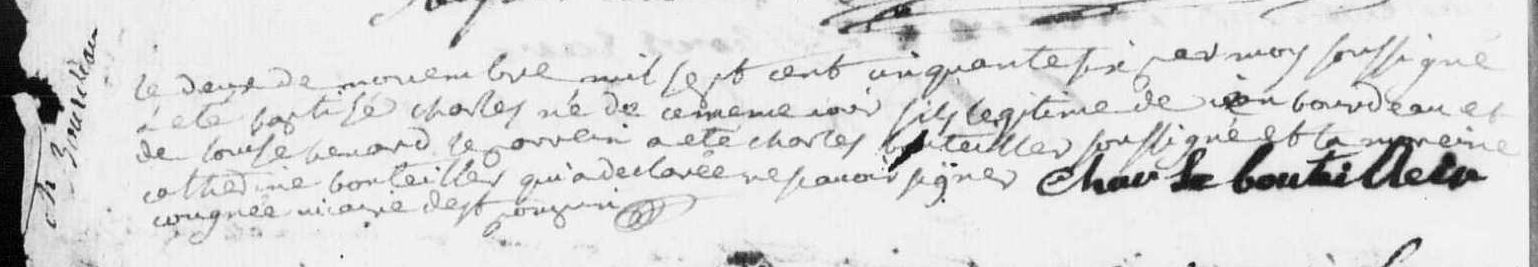 ch Bourdeau
le deux de novembre mil sept cent cinquante six par moy soussigné
a été baptisé charles né de ce meme iour fils legitime de iean bourdeau et
de louise benard le parrein a eté charles bouteiller soussigné et la mareine
catherine bouteiller qui a declarée ne scavoir signer Charle bouteiller
cougnée vicaire de st